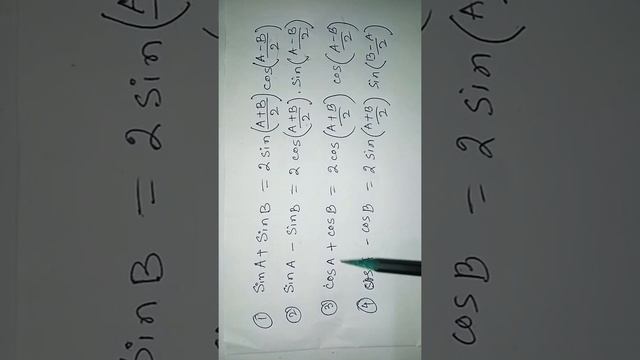 ① SinA + SinB = 2 sin(A+B/2) cos(A-B/2)
② SinA - SinB = 2 cos(A+B/2) . sin(A-B/2)
③ cosA + cosB = 2 cos(A+B/2) cos(A-B/2)
④ - cosB = 2 sin(A+B/2) sin(B-A/2)